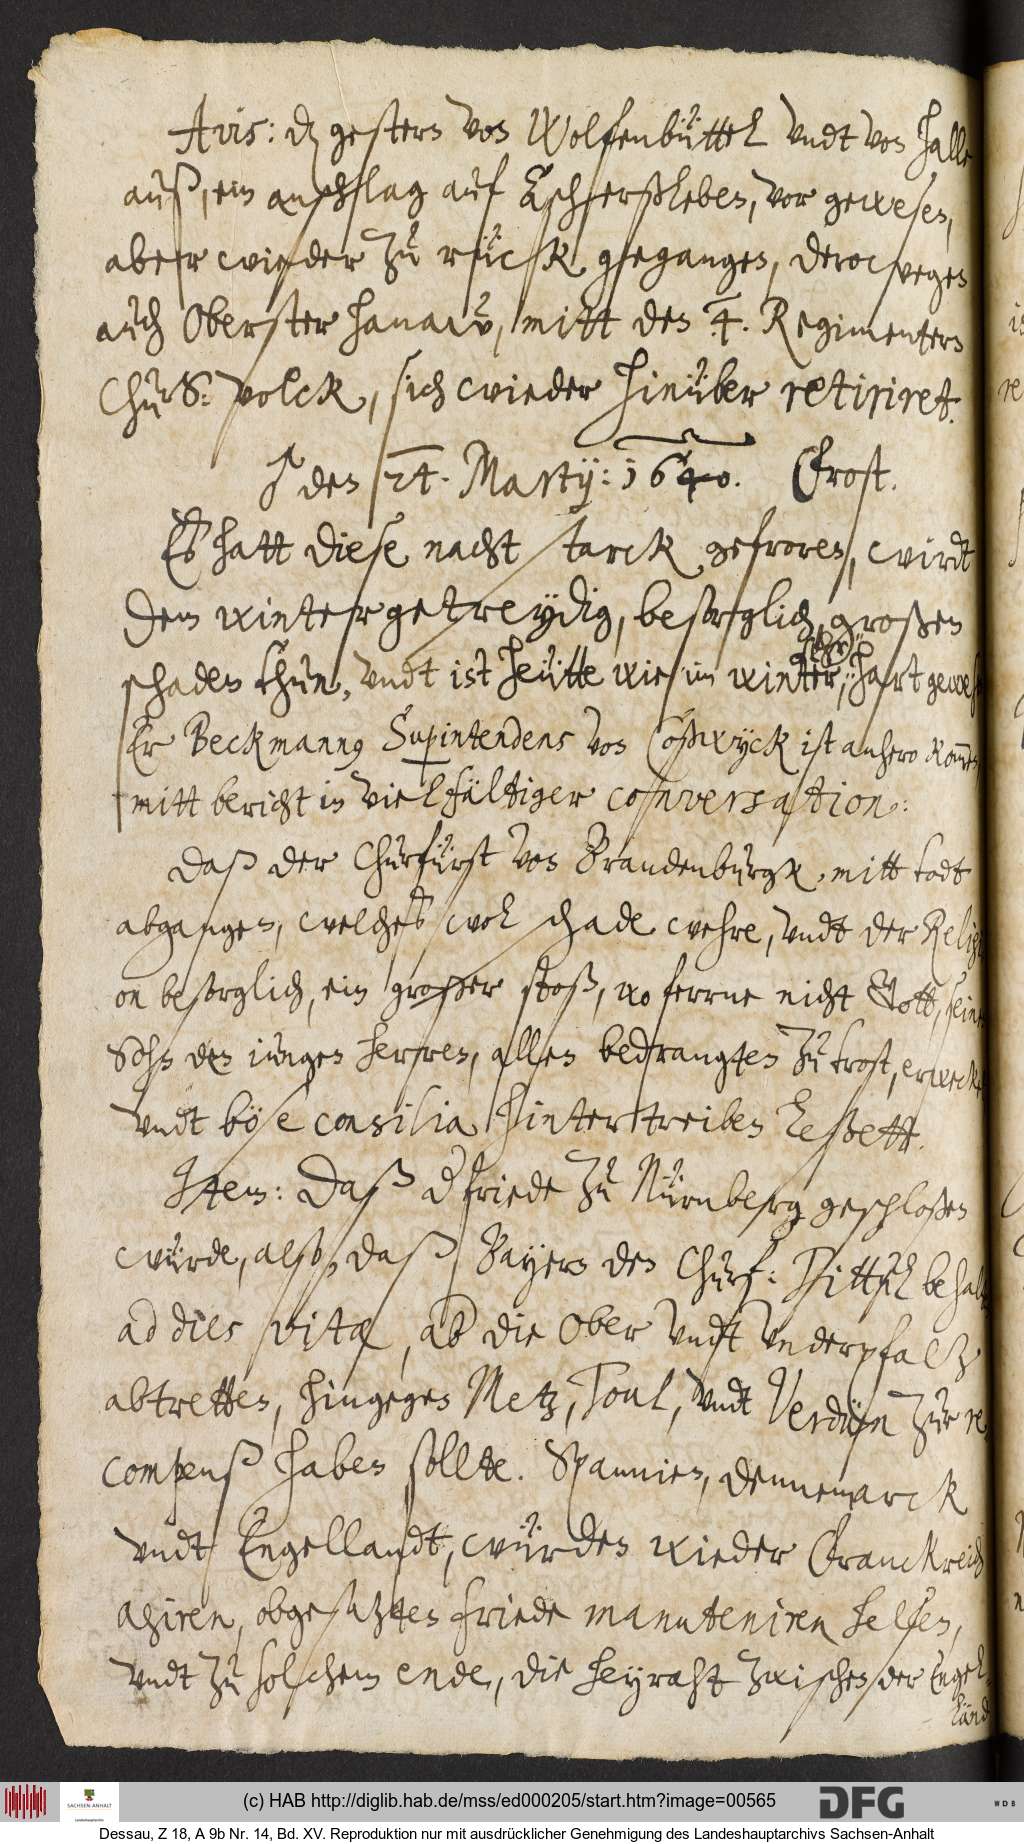 Avis: dz gestern von Wolfenbüttel vndt von Halle
auß, ein anschlag auf Aschersleben, vor gewesen,
aber wieder zu rück gegangen, derowegen
auch Oberster Hanaw, mitt den 4. Regimentern
ChurS: volck, sich wieder hinüber retiriret.
♂ den 24. Martij: 1640. Frost.
Es hatt diese nacht starck gefroren, wirdt
dem wintergetreydig, besorglich, großen
schaden thun, vndt ist heütte wie im winter, sehr hart gewesen
Er Beckmannus Supintendens von Coßwyck ist anhero kommen
mitt bericht in vielfältiger conversation:
daß der Churfürst von Brandenburgk, mitt todt
abgangen, welches wol schade wehre, vndt der Religi
on besorglich, ein großer stoß, wo ferrne nicht Gott, seinen
Sohn den iungen herren, allen bedrangten zu trost, erweckte
vndt böse consilia hintertreiben ließett.
Item: daß der friede zu Nürnberg geschloßen
würde, also, daß Bayern den Churf: Tittul behalten
ad dies vitæ, ab die Ober vndt vnderpfaltz
abtretten, hingegen Metz, Toul, vndt Verdün zur re
compenß haben sollte. Spannien, Dennemarck
vndt Engellandt, würden wieder Franckreich
agiren, obgesatzten friede manuteniren helfen,
vndt zu solchem ende, die heyraht zwischen der Engel
länd
(c) HAB http://diglib.hab.de/mss/ed000205/start.htm?image=00565
SACHSEN-ANHALT
DFG
WDB
Dessau, Z 18, A 9b Nr. 14, Bd. XV. Reproduktion nur mit ausdrücklicher Genehmigung des Landeshauptarchivs Sachsen-Anhalt